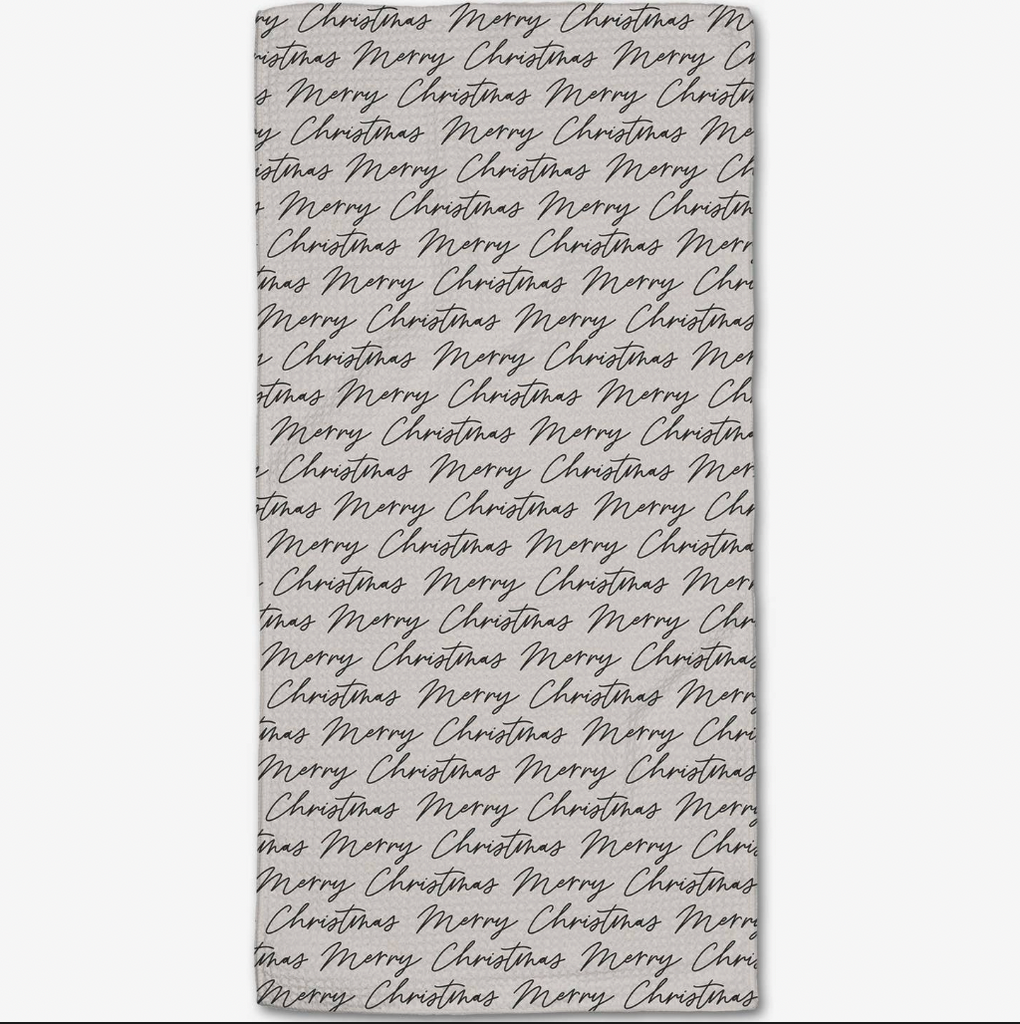 ry Christmas Merry Christmas M
ristmas Merry Christmas Merry C
s Merry Christmas Merry Christm
ry Christmas Merry Christmas Me
istmas Merry Christmas Merry Ch
s Merry Christmas Merry Christm
Christmas Merry Christmas Merr
tmas Merry Christmas Merry Chri
Merry Christmas Merry Christmas
y Christmas Merry Christmas Mer
stmas Merry Christmas Merry Ch
Merry Christmas Merry Christma
y Christmas Merry Christmas Mer
stmas Merry Christmas Merry Chr
Merry Christmas Merry Christma
Christmas Merry Christmas Merr
tmas Merry Christmas Merry Chr
Merry Christmas Merry Christmas
Christmas Merry Christmas Merry
tmas Merry Christmas Merry Chri
Merry Christmas Merry Christmas
Christmas Merry Christmas Merry
tmas Merry Christmas Merry Chris
Merry Christmas Merry Christmas
Christmas Merry Christmas Merry
tmas Merry Christmas Merry Chris
Merry Christmas Merry Christmas